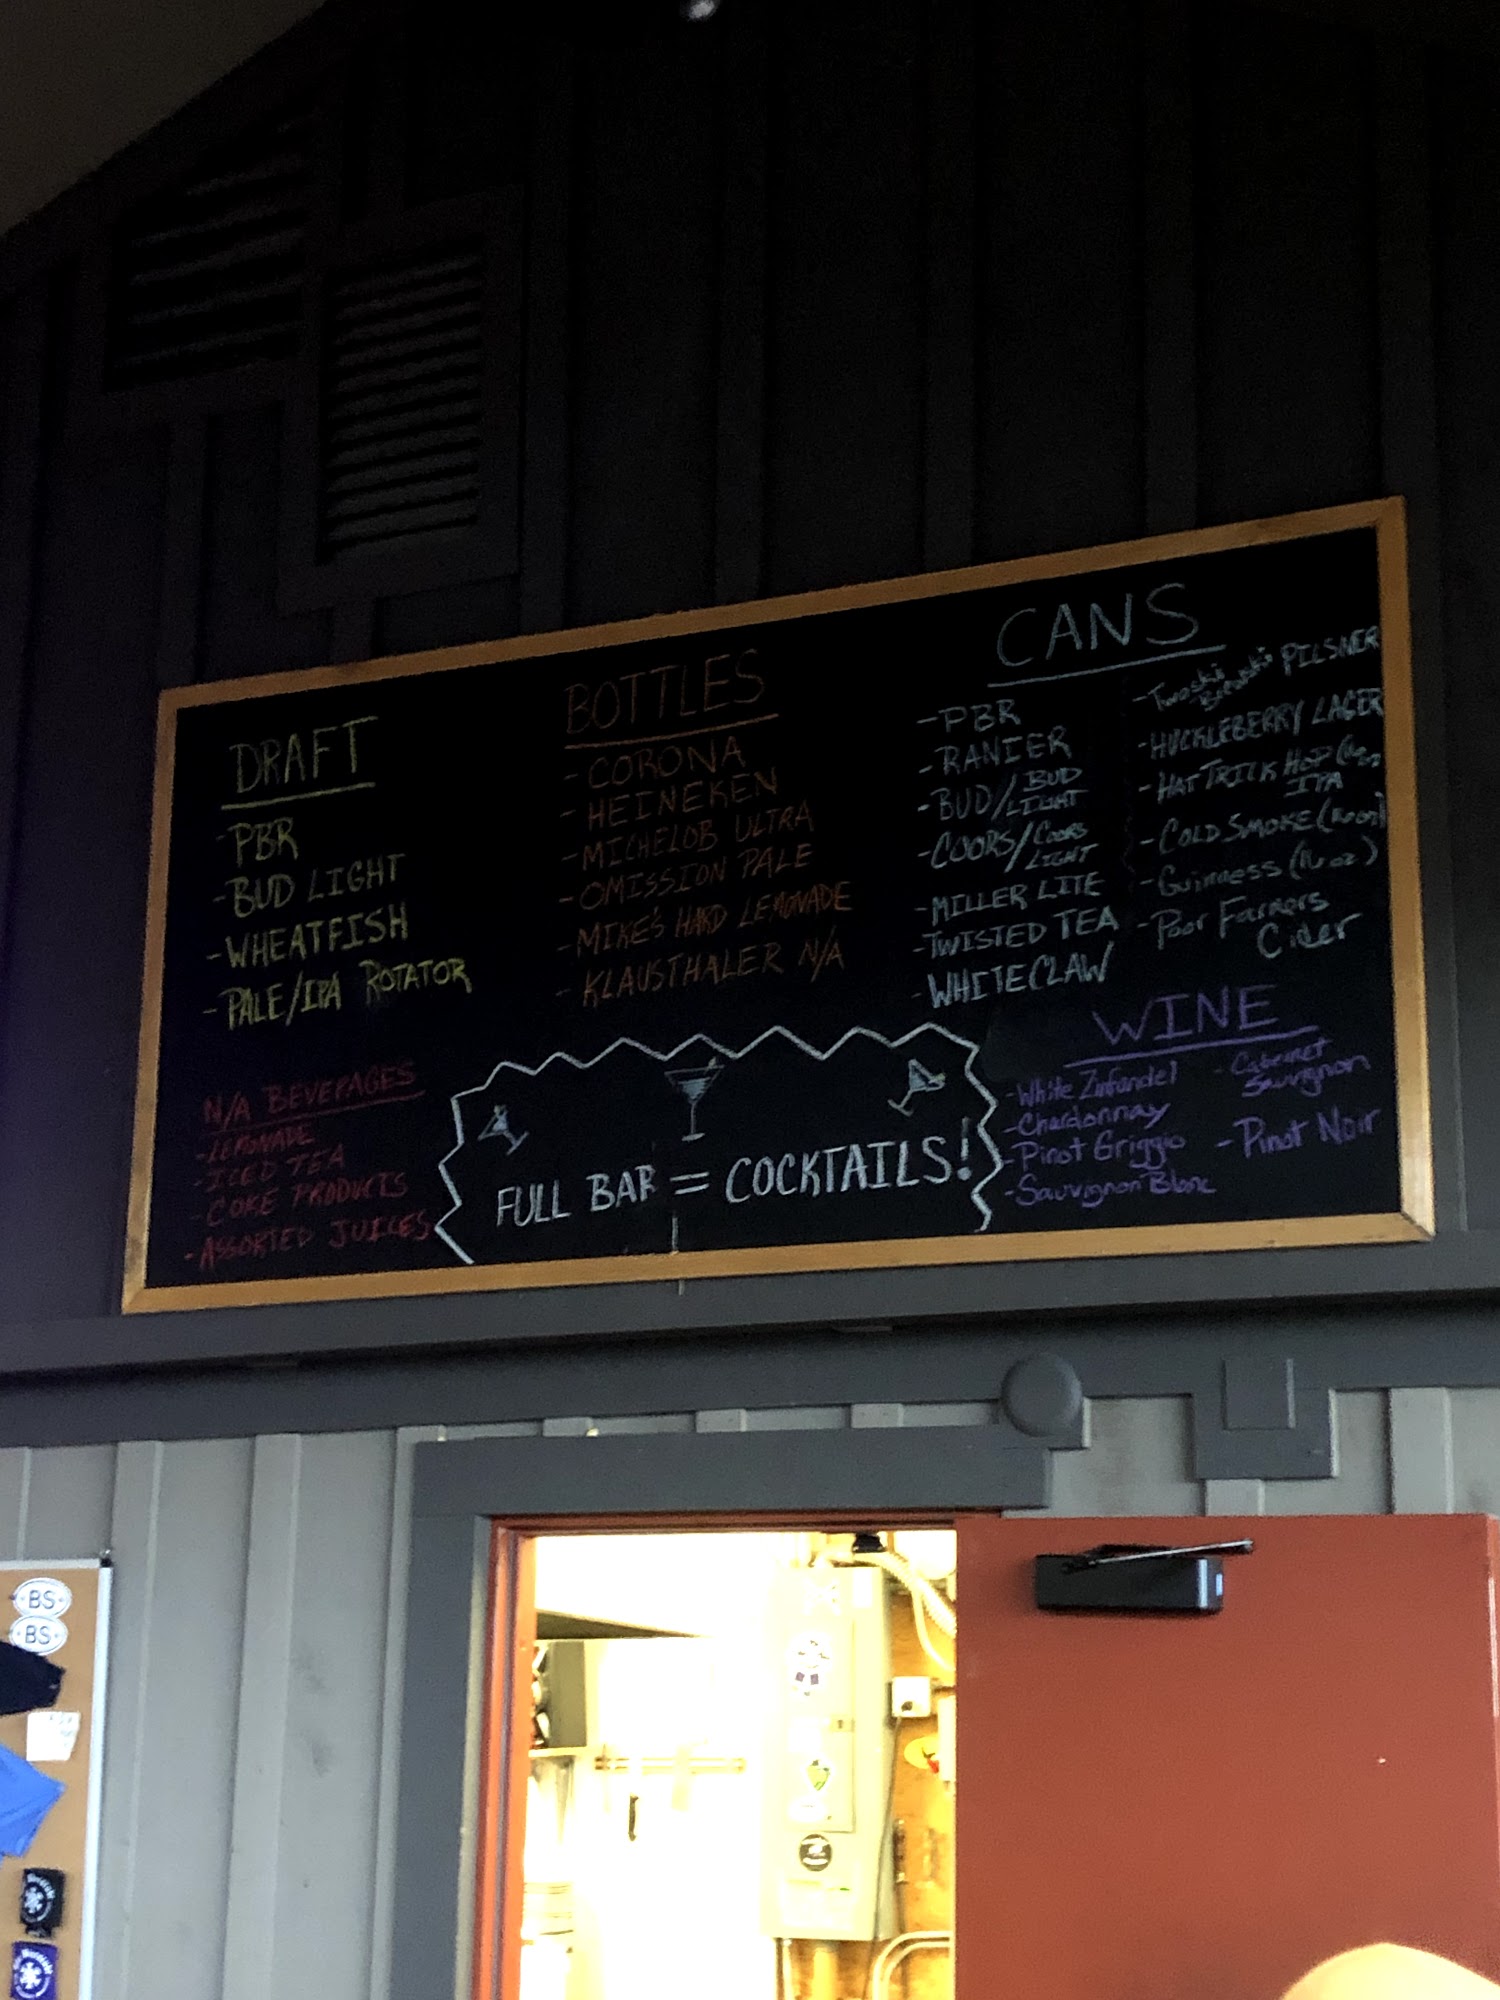 DRAFT
- PBR
- BUD LIGHT
- WHEATFISH
- PALE/IPA ROTATOR
BOTTLES
- CORONA
- HEINEKEN
- MICHELOB ULTRA
- OMISSION PALE
- MIKE'S HARD LEMONADE
- KLAUSTHALER N/A
CANS
- PBR
- RANIER
- BUD/BUD
LIGHT
- COORS/COORS
LIGHT
- MILLER LITE
- TWISTED TEA
- WHITECLAW
- PILSNER
- HUCKLEBERRY LAGER
- HAT TRICK HOP
IPA
- COLD SMOKE (16 oz)
- Guinness (16 oz)
- Poor Farmers
Cider
N/A BEVERAGES
- LEMONADE
- ICED TEA
- COKE PRODUCTS
- ASSORTED JUICES
FULL BAR = COCKTAILS!
WINE
- White Zinfandel
- Chardonnay
- Pinot Griggio
- Sauvignon Blanc
- Cabernet
Sauvignon
- Pinot Noir
BS
BS